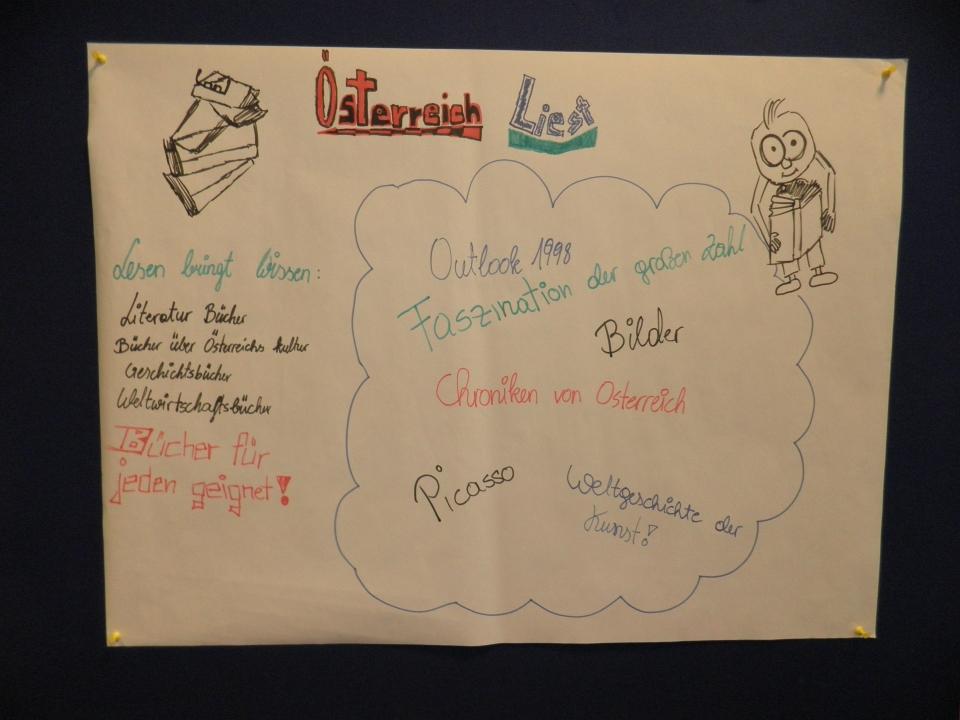 Österreich Liest
Lesen bringt Wissen:
Literatur Bücher
Bücher über Österreichs Kultur
Geschichtsbücher
Weltwirtschaftsbücher
Bücher für
jeden geignet!
Outlook 1998
Faszination der großen Zahl
Bilder
Chroniken von Österreich
Picasso
Weltgeschichte der
Kunst!